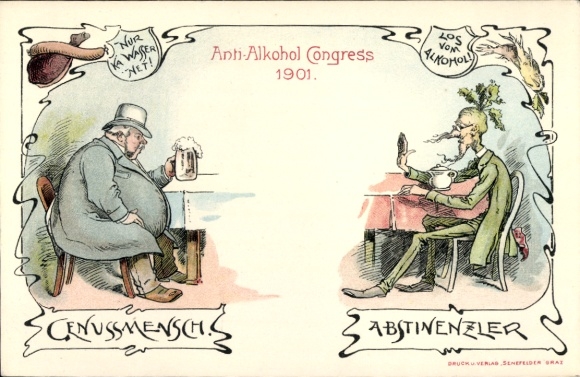 Anti-Alkohol Congress
1901.
NUR
KA WASSER
NET!
LOS
VOM
ALKOHOL!
GENUSSMENSCH.
ABSTINENZLER
DRUCK U. VERLAG „SENEFELDER“ GRAZ